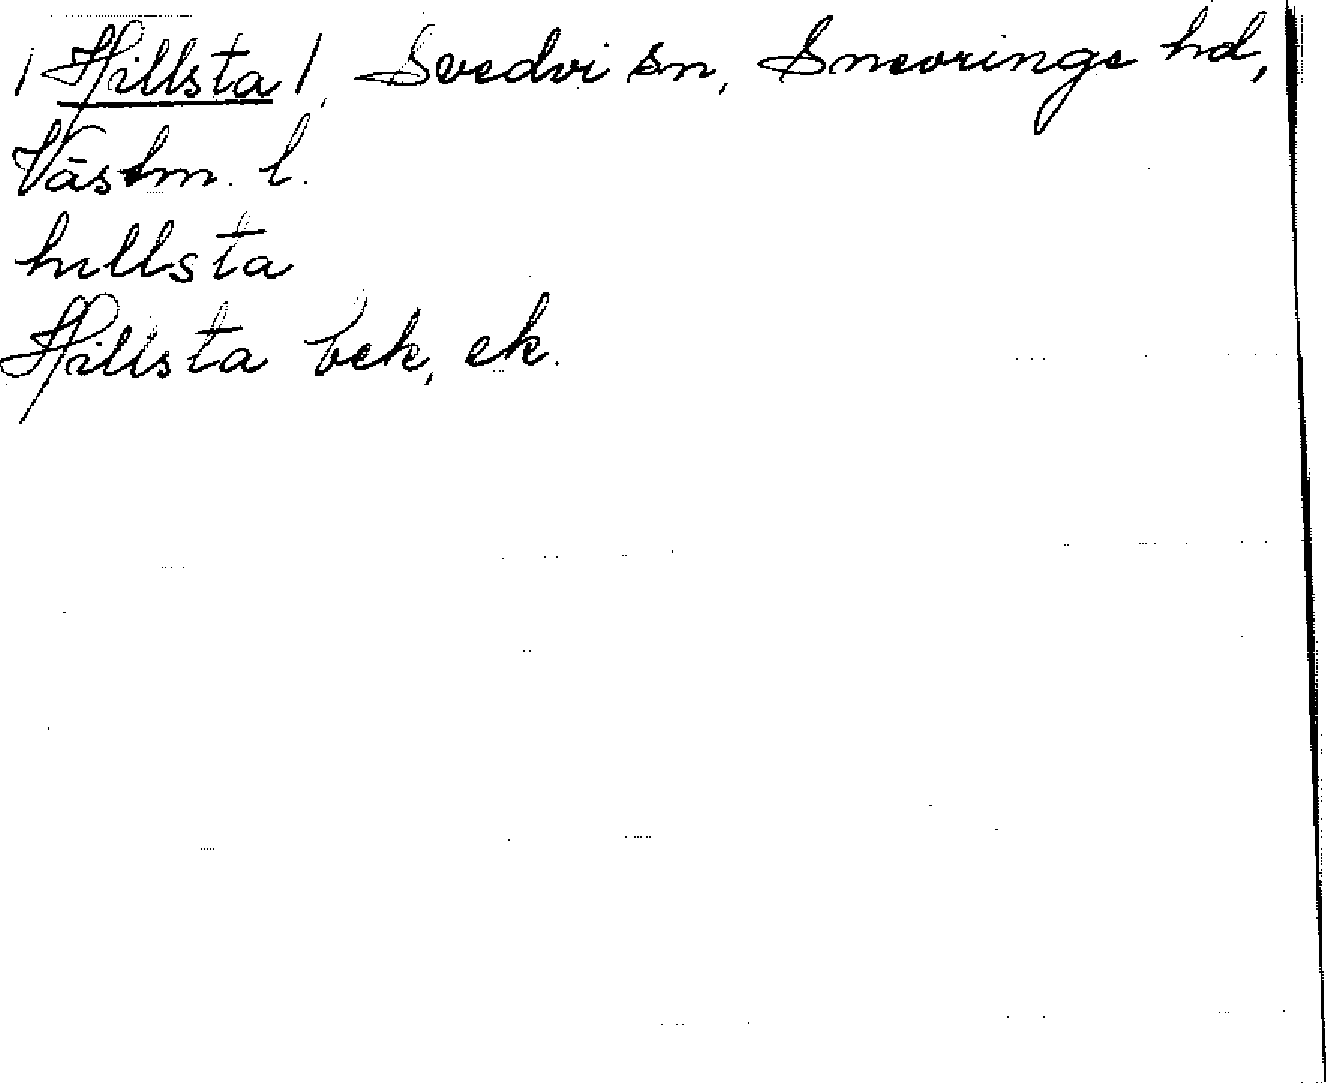 /Hillsta/, Svedvi sn, Snevringe hd,
Västm. l.
hillsta
Hillsta bek, ek.